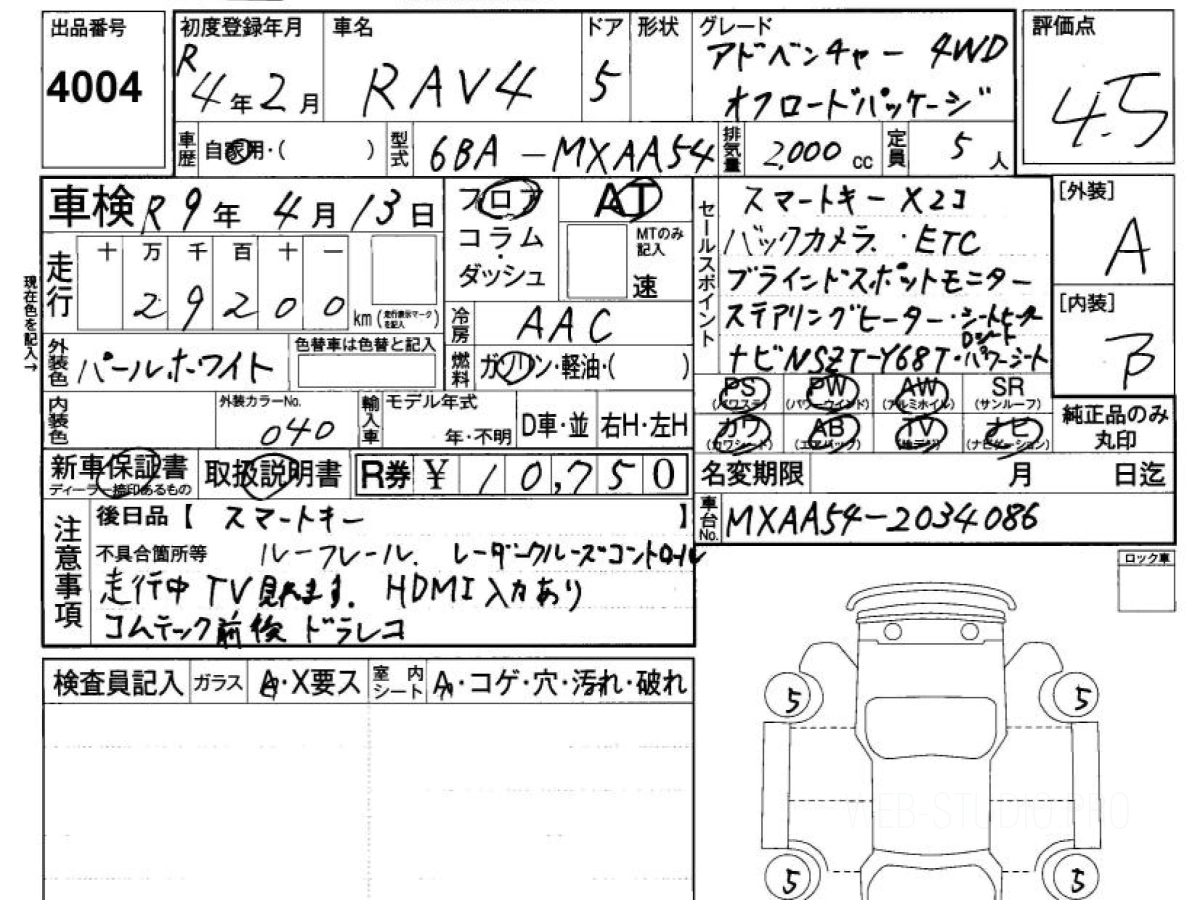 出品番号
4004
初度登録年月
R4年2月
車名
RAV4
ドア
5
形状
グレード
アドベンチャー 4WD
オフロードパッケージ
評価点
4.5
車歴
自家用・( )
型式
6BA-MXAA54
排気量
2,000cc
定員
5人
車検 R9年4月13日
フロア
コラム
・
ダッシュ
AT
MTのみ記入
速
セールスポイント
スマートキー X2コ
バックカメラ. ・ETC
ブラインドスポットモニター
ステアリングヒーター・シートヒーター
Dシート
ナビNSZT-Y68T・パワーシート
[外装]
A
[内装]
B
現在色を記入→
走行
十 万 千 百 十 一
2 9 2 0 0
km(走行表示マークを記入)
冷房
AAC
外装色
パールホワイト
色替車は色替と記入
燃料
ガソリン・軽油・( )
PS
(パワステ)
PW
(パワーウインド)
AW
(アルミホイル)
SR
(サンルーフ)
カワ
(カワシート)
AB
(エアバック)
TV
(地デジ)
ナビ
(ナビゲーション)
純正品のみ
丸印
内装色
外装カラーNo.
040
輸入車
モデル年式
年・不明
D車・並
右H・左H
新車保証書
ディーラー捺印あるもの
取扱説明書
R券 ¥ 10,750
名変期限 月 日迄
車台No.
MXAA54-2034086
注意事項
後日品【 スマートキー 】
不具合箇所等 ルーフレール. レーダークルーズコントロール
走行中TV見れます. HDMI入力あり
コムテック前後ドラレコ
ロック車
検査員記入
ガラス
A・X要ス
室内シート
A・コゲ・穴・汚れ・破れ
5
5
5
5
WEB-STUDIO.PRO